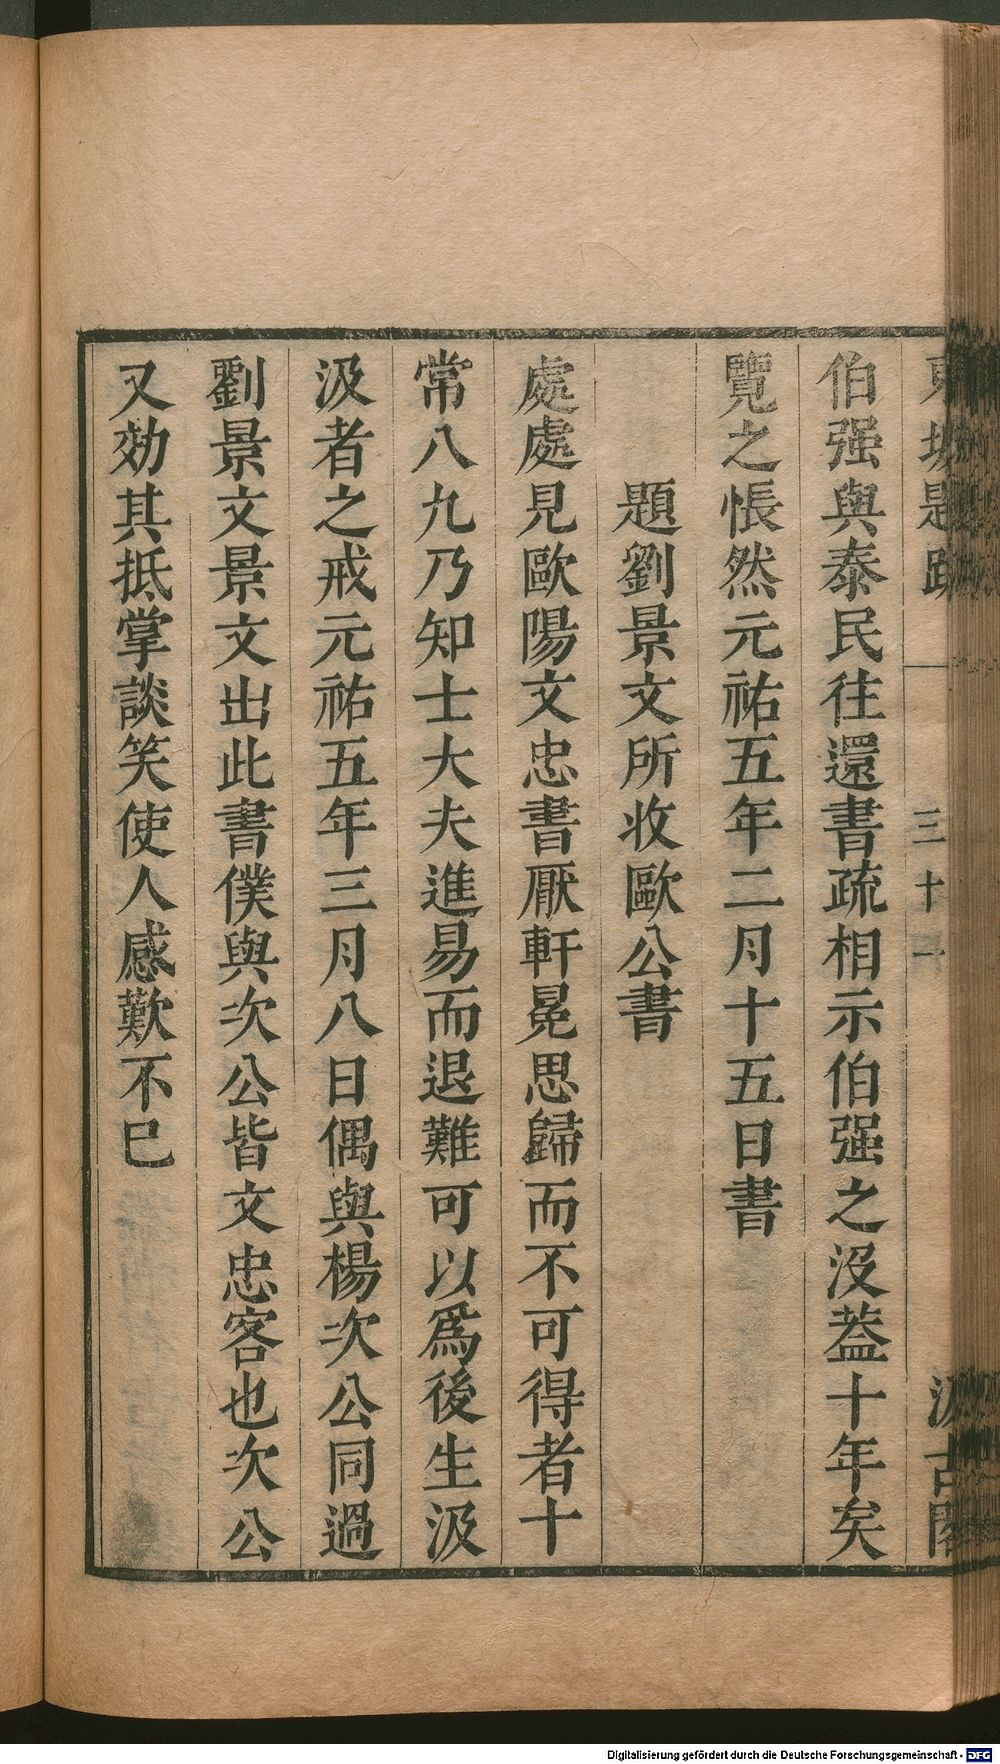 東坡題跋 三十一 汲古閣
伯强與泰民往還書疏相示伯强之沒葢十年矣
覽之悵然元祐五年二月十五日書
題劉景文所收歐公書
處處見歐陽文忠書厭軒冕思歸而不可得者十
常八九乃知士大夫進易而退難可以爲後生汲
汲者之戒元祐五年三月八日偶與楊次公同過
劉景文景文出此書僕與次公皆文忠客也次公
又効其抵掌談笑使人感歎不已
Digitalisierung gefördert durch die Deutsche Forschungsgemeinschaft - DFG